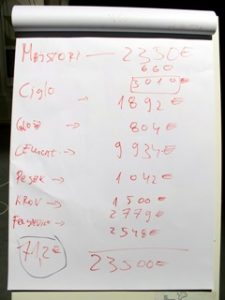 MAJSTORI — 2350€
660
3010
CIGLO → 1892€
→ 804€
CEMENT → 9934€
PESEK → 1042€
KROV → 1500€
2779€
2548€
712€
23500€